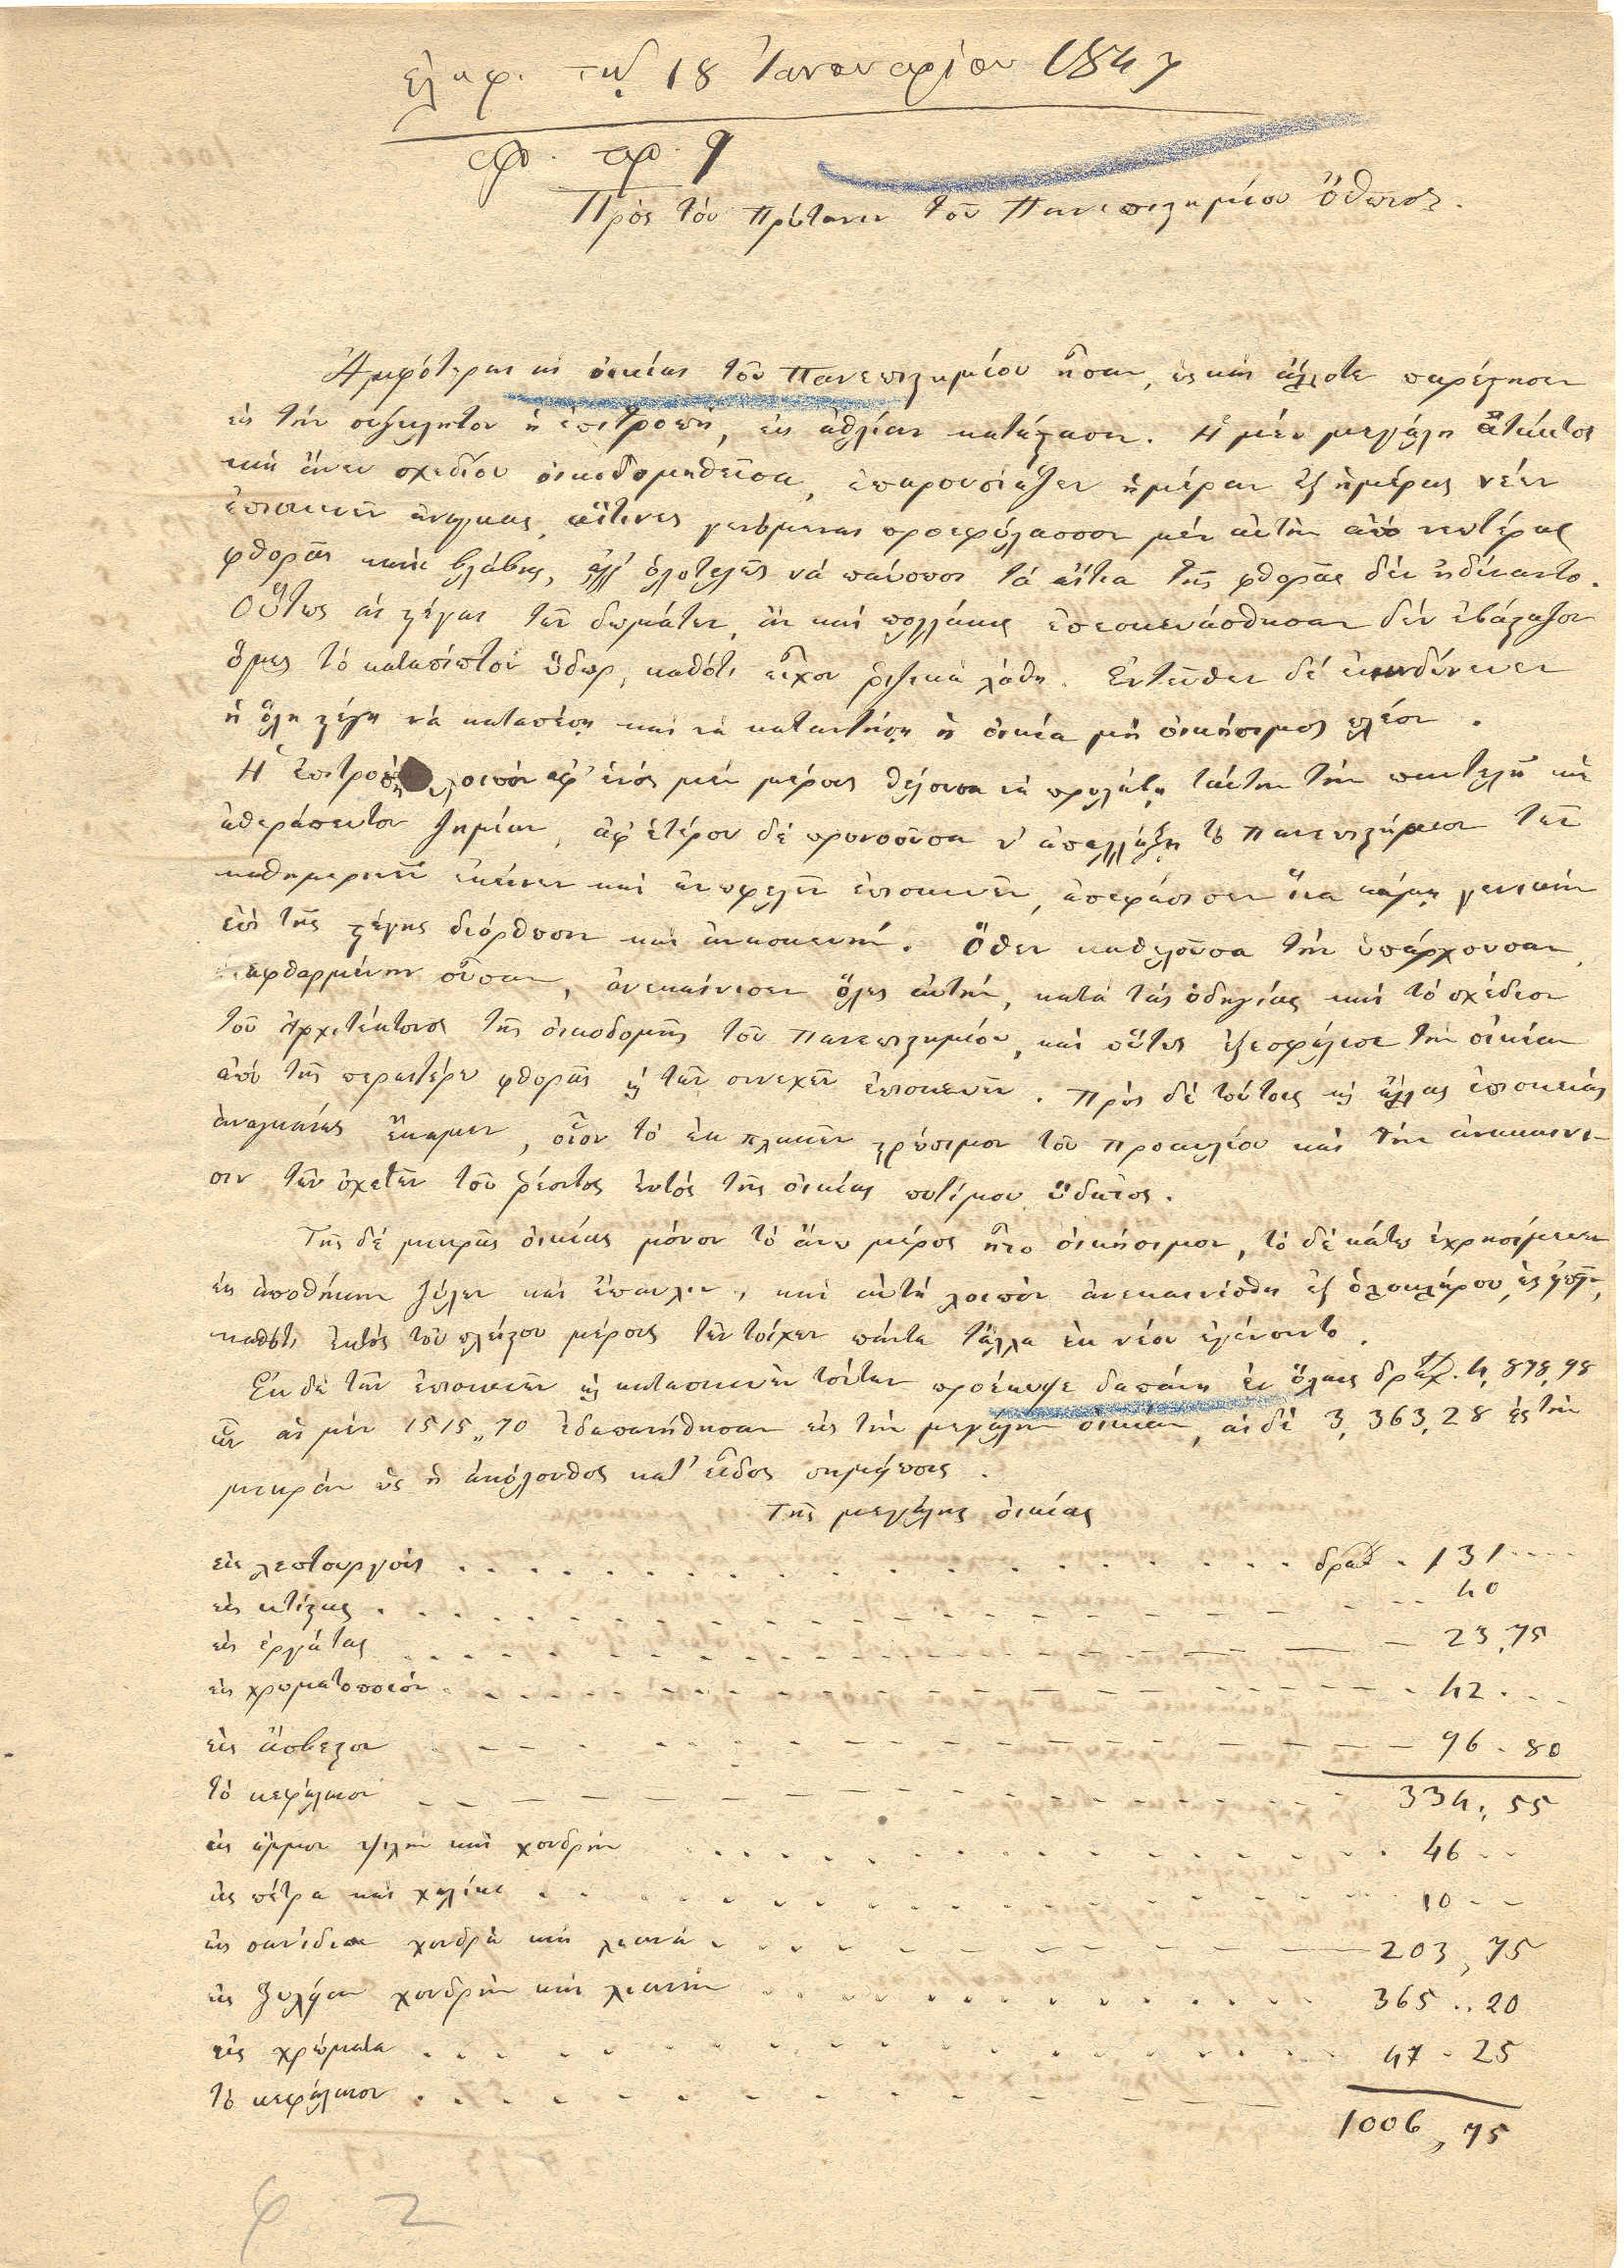 ἐλήφ. τῇ 18 Ἰανουαρίου 1847
ἀρ. πρ. 9
Πρὸς τὸν Πρύτανιν τοῦ Πανεπιστημίου Ὄθωνος.
Ἀμφότεραι αἱ οἰκίαι τοῦ Πανεπιστημίου ἦσαν, ὡς καὶ ἄλλοτε παρέστησεν
εἰς τὴν σύγκλητον ἡ ἐπιτροπὴ, εἰς ἀθλίαν κατάστασιν. Ἡ μὲν μεγάλη ἀτάκτως
καὶ ἄνευ σχεδίου οἰκοδομηθεῖσα, ἐπαρουσίαζεν ἡμέραν ἐξ ἡμέρας νέων
ἐπισκευῶν ἀνάγκας, αἵτινες γενόμεναι προεφύλασσον μὲν αὐτὴν ἀπὸ νεωτέρας
φθορᾶς καὶ βλάβης, ἀλλ' ὁλοτελῶς νὰ παύσουσι τὰ αἴτια τῆς φθορᾶς δὲν ἠδύναντο.
Οὕτως αἱ στέγαι τῶν δωμάτων, ἂν καὶ πολλάκις ἐπεσκευάσθησαν δὲν ἐβάσταζον
ὅμως τὸ καταπίπτον ὕδωρ, καθότι εἶχον ῥιζικὰ λάθη. Ἐντεῦθεν δὲ ἐκινδύνευεν
ἡ ὅλη στέγη νὰ καταπέσῃ καὶ νὰ καταντήσῃ ἡ οἰκία μὴ οἰκήσιμος πλέον.
Ἡ ἐπιτροπὴ λοιπὸν ἀφ' ἑνὸς μὲν μέρους θέλουσα νὰ προλάβῃ ταύτην τὴν παντελῆ καὶ
ἀθεράπευτον ζημίαν, ἀφ' ἑτέρου δὲ προνοοῦσα ν' ἀπαλλάξῃ τὸ Πανεπιστήμιον τῶν
καθημερινῶν ἐκείνων καὶ ἀνωφελῶν ἐπισκευῶν, ἀπεφάσισεν ἵνα κάμῃ γενικὴν
ἐπὶ τῆς στέγης διόρθωσιν καὶ ἀνασκευήν. Ὅθεν καθελοῦσα τὴν ὑπάρχουσαν,
διεφθαρμένην οὖσαν, ἀνεκαίνισεν ὅλως αὐτὴν, κατὰ τὰς ὁδηγίας καὶ τὸ σχέδιον
τοῦ Ἀρχιτέκτονος τῆς οἰκοδομῆς τοῦ Πανεπιστημίου, καὶ οὕτως ἐξεσφάλισε τὴν οἰκίαν
ἀπὸ τῆς περαιτέρω φθορᾶς καὶ τῶν συνεχῶν ἐπισκευῶν. Πρὸς δὲ τούτοις καὶ ἄλλας ἐπισκευὰς
ἀναγκαίας ἔκαμεν, οἷον τὸ ἐκ πλακῶν στρώσιμον τοῦ προαυλίου καὶ τὴν ἀνακαίνι-
σιν τῶν ὀχετῶν τοῦ ῥέοντος ἐντὸς τῆς οἰκίας ποτίμου ὕδατος.
Τῆς δὲ μικρᾶς οἰκίας μόνον τὸ ἄνω μέρος ἦτο οἰκήσιμον, τὸ δὲ κάτω ἐχρησίμευεν
εἰς ἀποθήκην ξύλων καὶ ἔπαυλιν, καὶ αὐτὴ λοιπὸν ἀνεκαινίσθη ἐξ ὁλοκλήρου,
καθότι ἐκτὸς τοῦ πλείστου μέρους τῶν τοίχων πάντα τἄλλα ἐκ νέου ἐγένοντο.
Ἐκ δὲ τῶν ἐπισκευῶν καὶ κατασκευῶν τούτων προέκυψε δαπάνη ἐν ὅλαις δραχ. 4,878,98
ὧν αἱ μὲν 1515,,70 ἐδαπανήθησαν εἰς τὴν μεγάλην οἰκίαν, αἱ δὲ 3,363,28 εἰς τὴν
μικρὰν ὡς ἡ ἀκόλουθος κατ' εἶδος σημείωσις.
Τῆς μεγάλης οἰκίας
εἰς λεπτουργοὺς . . . . δραχ. 131 ....
εἰς κτίστας . . . . 40
εἰς ἐργάτας . . . . 23,75
εἰς χρωματοποιὸν . . . . 42 . . .
εἰς ἄσβεστον . . . . 96 . 80
τὸ κεφάλαιον . . . . 334,, 55
εἰς ἄμμον ψιλὴν καὶ χονδρὴν . . . . 46 - -
εἰς πέτρα καὶ χαλίκι . . . . 10 - -
εἰς σανίδια χονδρὰ καὶ λιανά . . . . 203, 75
εἰς ξυλείαν χονδρὴν καὶ λιανὴν . . . . 365 .. 20
εἰς χρώματα . . . . 47 . 25
τὸ κεφάλαιον . . . . 1006, 75
φ 2